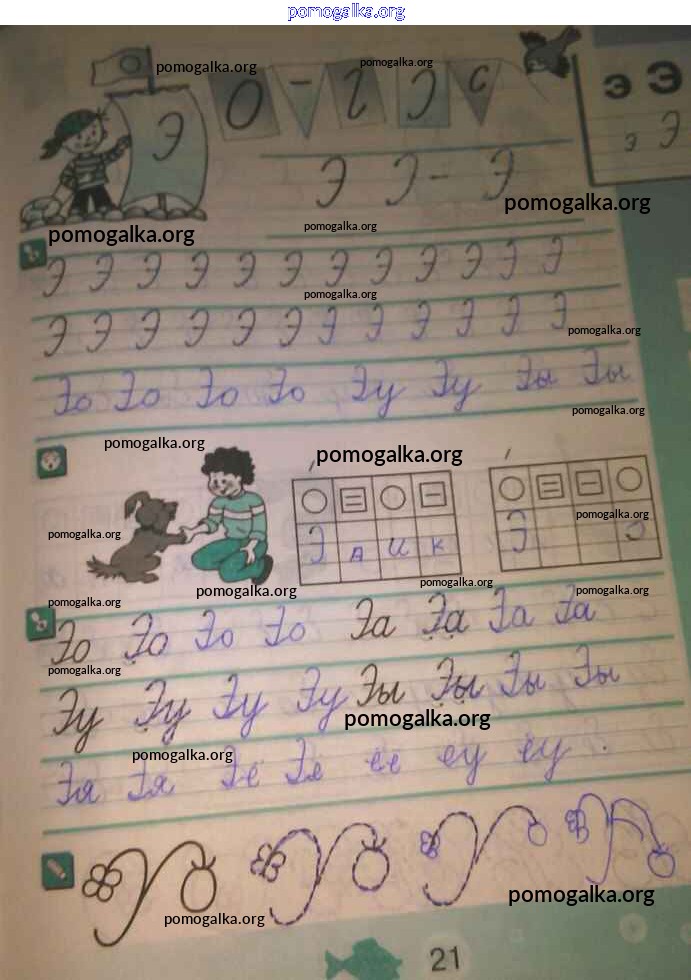 pomogalka.org
pomogalka.org
pomogalka.org
Э О
Э э
э Э
Э Э
pomogalka.org
pomogalka.org
pomogalka.org
Э Э Э Э Э Э Э Э Э Э Э Э
pomogalka.org
Э Э Э Э Э Э Э Э Э Э Э Э
pomogalka.org
Эо Эо Эо Эо Эу Эу Эы Эы
pomogalka.org
pomogalka.org
pomogalka.org
pomogalka.org
pomogalka.org
Э д и к
Э э
pomogalka.org
pomogalka.org
pomogalka.org
pomogalka.org
Эо Эо Эо Эо Эа Эа Эа Эа
pomogalka.org
Эу Эу Эу Эу Эы Эы Эы Эы
pomogalka.org
pomogalka.org
Эя Эя Эе Эе ее еу еу
pomogalka.org
pomogalka.org
21